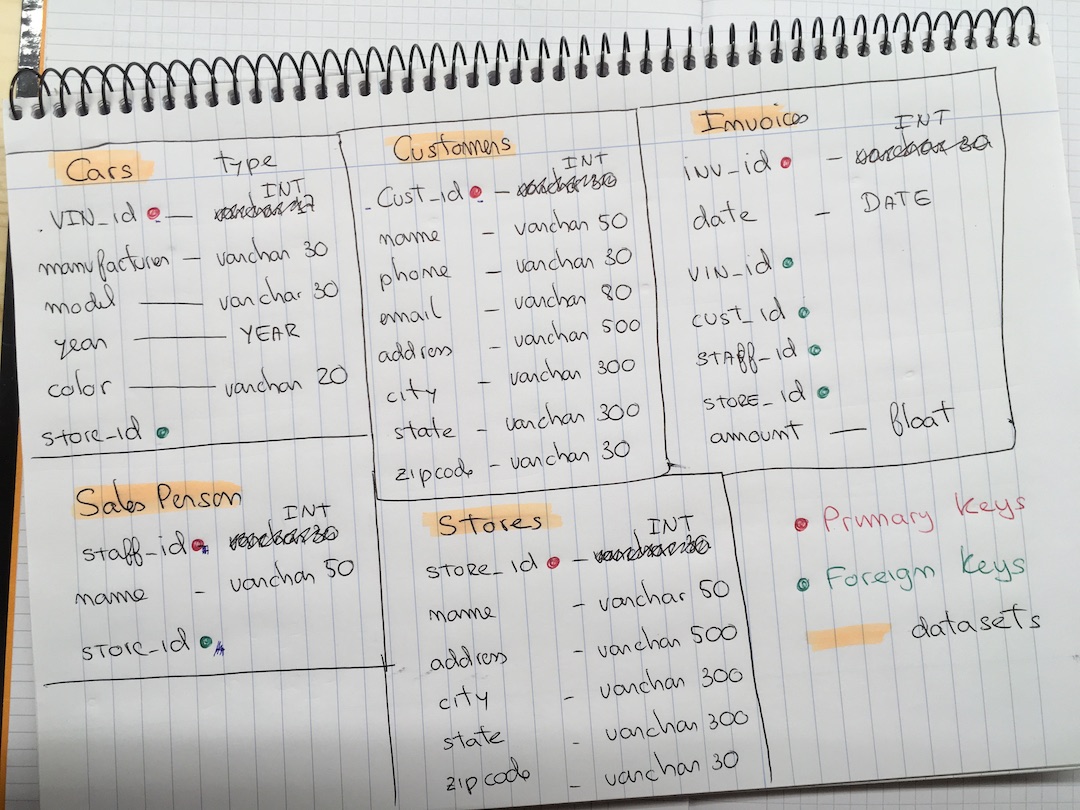 Cars type
INT
VIN_id — varchar 17
manufacturer — varchar 30
model — varchar 30
year — YEAR
color — varchar 20
store_id
Customers
INT
Cust_id — varchar 30
name - varchar 50
phone - varchar 30
email - varchar 80
address - varchar 500
city - varchar 300
state - varchar 300
zipcode - varchar 30
Invoices
INT
inv_id — varchar 30
date - DATE
VIN_id
cust_id
STAFF_id
STORE_id
amount — float
Sales Person
INT
staff_id varchar 30
name - varchar 50
store_id
Stores
INT
STORE_id — varchar 30
name - varchar 50
address - varchar 500
city - varchar 300
state - varchar 300
zipcode - varchar 30
Primary Keys
Foreign Keys
datasets